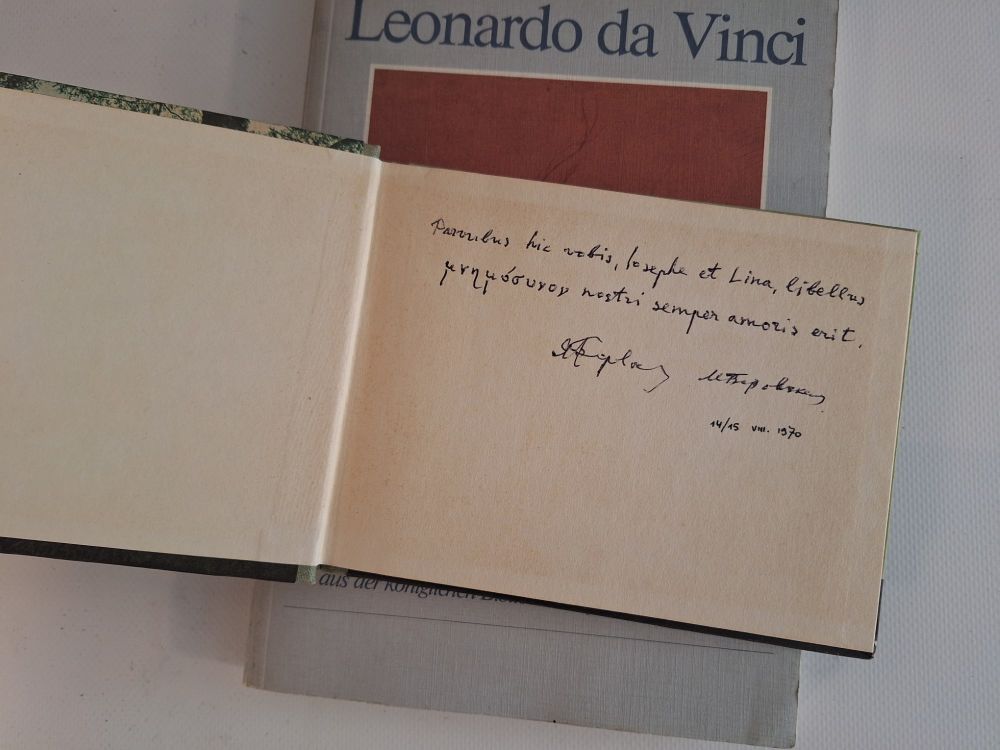 Leonardo da Vinci
Parvibus hic vobis, Iosephe et Lina, libellus
μνημόσυνον nostri semper amoris erit.
14/15 VIII. 1970
aus der Königlichen